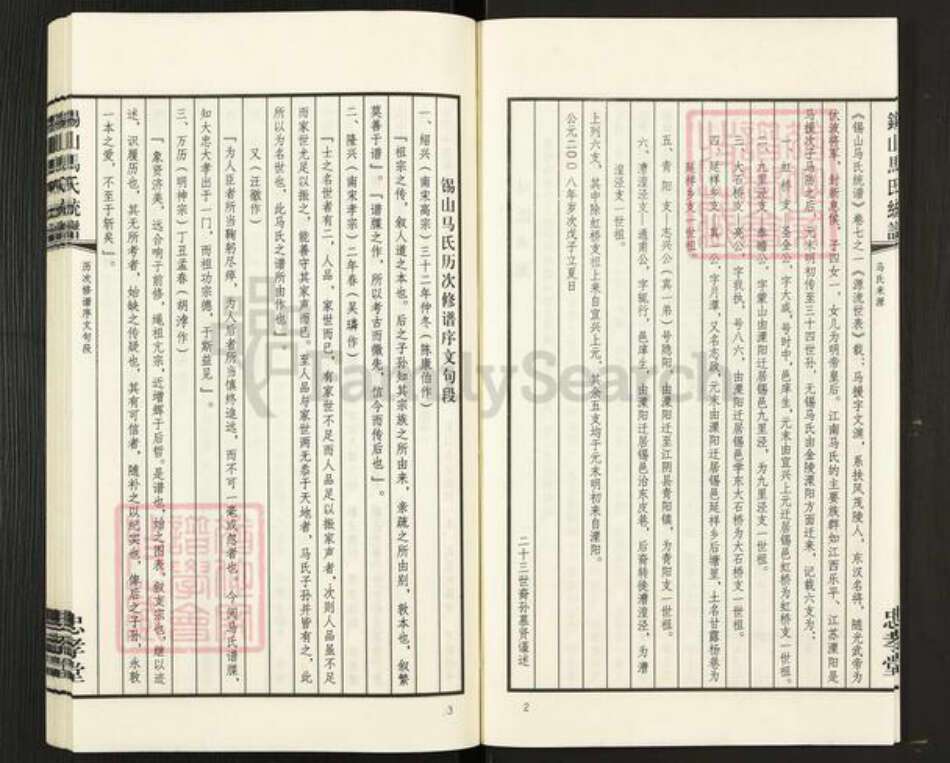 錫山馬氏統譜
马氏来源
忠孝堂
《锡山马氏统谱》卷七之一《源流世表》载：马援字文渊，系扶风茂陵人，东汉名将，随光武帝为
伏波将军，封新息侯，子四女一，女儿为明帝皇后。江南马氏的主要族群如江西乐平、江苏溧阳是
马援次子马防之后，元末明初传至三十四世孙，无锡马氏由金陵溧阳方面迁来，记载六支为：
一、虹桥支—圣全公，字大成，号时中，邑庠生，元末由宜兴上元迁居锡邑虹桥为虹桥支一世祖。
二、九里泾支—泰瞻公，字蒙山由溧阳迁居锡邑九里泾，为九里泾支一世祖。
三、大石桥支—亮公，字我扶，号八六，由溧阳迁居锡邑学东大石桥为大石桥支一世祖。
四、延祥乡支—真一公，字月潭，又名志政，元末由溧阳迁居锡邑延祥乡后塘里，土名甘露杨巷为
延祥乡支一世祖。
五、青阳支—志兴公（真一弟）号隐阳，由溧阳迁至江阴县青阳镇，为青阳支一世祖。
六、漕湟泾支—通甫公，字輗行，邑庠生，由溧阳迁居锡邑治东皮巷，后裔转徙漕湟泾，为漕
湟泾支一世祖。
上列六支，其中除虹桥支祖上来自宜兴上元，其余五支均于元末明初来自溧阳。
公元二〇〇八年岁次戊子立夏日
二十三世裔孙基贤谨述
2
锡山马氏历次修谱序文句段
一、绍兴（南宋高宗）三十二年仲冬（陈康伯作）
『祖宗之传，叙人道之本也。后之子孙知其宗族之所由来，亲疏之所由别，敦本也，叙繁
莫善于谱』。『谱牒之作，所以考古而徵先，信今而传后也』。
二、隆兴（南宋孝宗）二年春（吴璘作）
『士之名世者有二，人品、家世而已，有家世不足而人品足以振家声者，次则人品虽不足
而家世尤足以振之，能善守其家声而已。至人品与家世两无忝于天地者，马氏子孙并皆有之，此
所以为名世也，此马氏之谱所由作也』。
又（汪徹作）
『为人臣者所当鞠躬尽瘁，为人后者所当慎终追远，而不可一毫或忽者也，今阅马氏谱牒，
知大忠大孝出于一门，而祖功宗德，于斯益见』。
三、万历（明神宗）丁丑孟春（胡涍作）
『象贤济美，远合响于前修，绳祖亢宗，近增辉于后哲。是谱也，始之图表，叙支宗也，继以迹
述，识履历也，其无所考者，始缺之传疑也，其有可信者，随补之以纪实也，俾后之子孙，永敦
一本之爱，不至于斩矣』。
錫山馬氏統譜
历次修谱序文句段
忠孝堂
3
FamilySearch